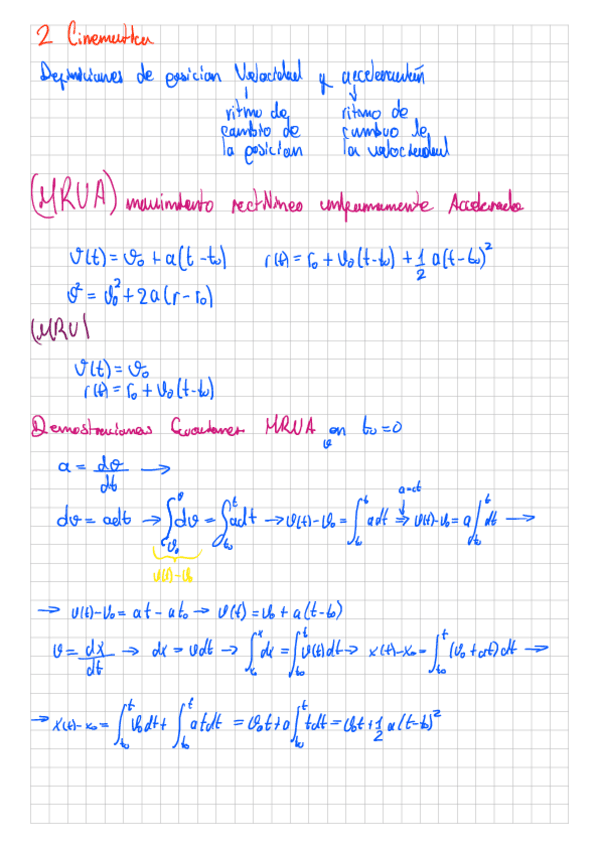 2 Cinematica
Definiciones de posicion Velocidad y acceleración
↓ ↓
ritmo de ritmo de
cambio de cambio de
la posicion la velocidad
(MRUA) movimiento rectilineo uniformemente Accelerado
v(t) = v₀ + a(t - t₀) r(t) = r₀ + v₀(t-t₀) + 1/2 a(t-t₀)²
v² = v₀² + 2a(r - r₀)
(MRU)
v(t) = v₀
r(t) = r₀ + v₀(t-t₀)
Demostraciones Ecuaciones MRUA en t₀ = 0
a = dv/dt →
dv = adt → ∫_{v₀}^{v} dv = ∫_{t₀}^{t} adt → v(t) - v₀ = ∫_{t₀}^{t} adt ⇒ v(t) - v₀ = a∫_{t₀}^{t} dt →
a=ct
v(t) - v₀
→ v(t) - v₀ = at - at₀ → v(t) = v₀ + a(t-t₀)
v = dx/dt → dx = vdt → ∫_{x₀}^{x} dx = ∫_{t₀}^{t} v(t)dt → x(t) - x₀ = ∫_{t₀}^{t} (v₀ + at) dt →
→ x(t) - x₀ = ∫_{t₀}^{t} v₀dt + ∫_{t₀}^{t} atdt = v₀t + a∫_{t₀}^{t} tdt = v₀t + 1/2 a(t-t₀)²